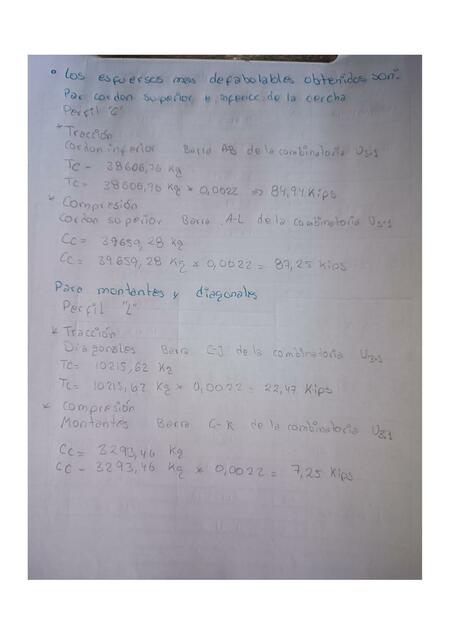 • Los esfuersos mas defabolables obtenidos son:
Par cordon superior e inferior de la cercha
Perfil "C"
* Tracción
Cordon inferior Barra AB de la combinatoria U3-1
Tc = 38606,76 Kg
Tc = 38606,76 Kg * 0,0022 => 84,94 Kips
* Compresión
Cordon superior Barra A-L de la combinatoria U3-1
Cc = 39659,28 Kg
Cc = 39659,28 Kg * 0,0022 = 87,25 Kips
Para montantes y diagonales
Perfil "L"
* Tracción
Diagonales Barra C-J de la combinatoria U3-1
Tc = 10215,62 Kg
Tc = 10215,62 Kg * 0,0022 = 22,47 Kips
* Compresión
Montantes Barra C-K de la combinatoria U3-1
Cc = 3293,46 Kg
Cc - 3293,46 Kg * 0,0022 = 7,25 Kips